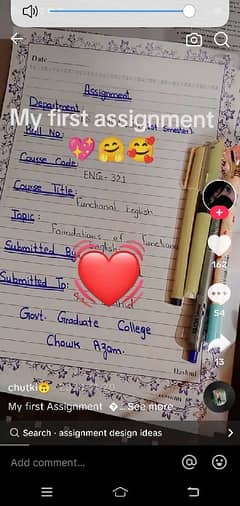 Date
Assignment
Department
My first assignment
Roll No:
(1st Semester)
Course Code
ENG-321
Course Title:
Functional English
Topic:
Foundations of Functional
English
Submitted By
Submitted To:
Govt. Graduate College
Chowk Azam.
162
54
13
chutki🙃
My first Assignment �... See more
Search · assignment design ideas
Add comment...